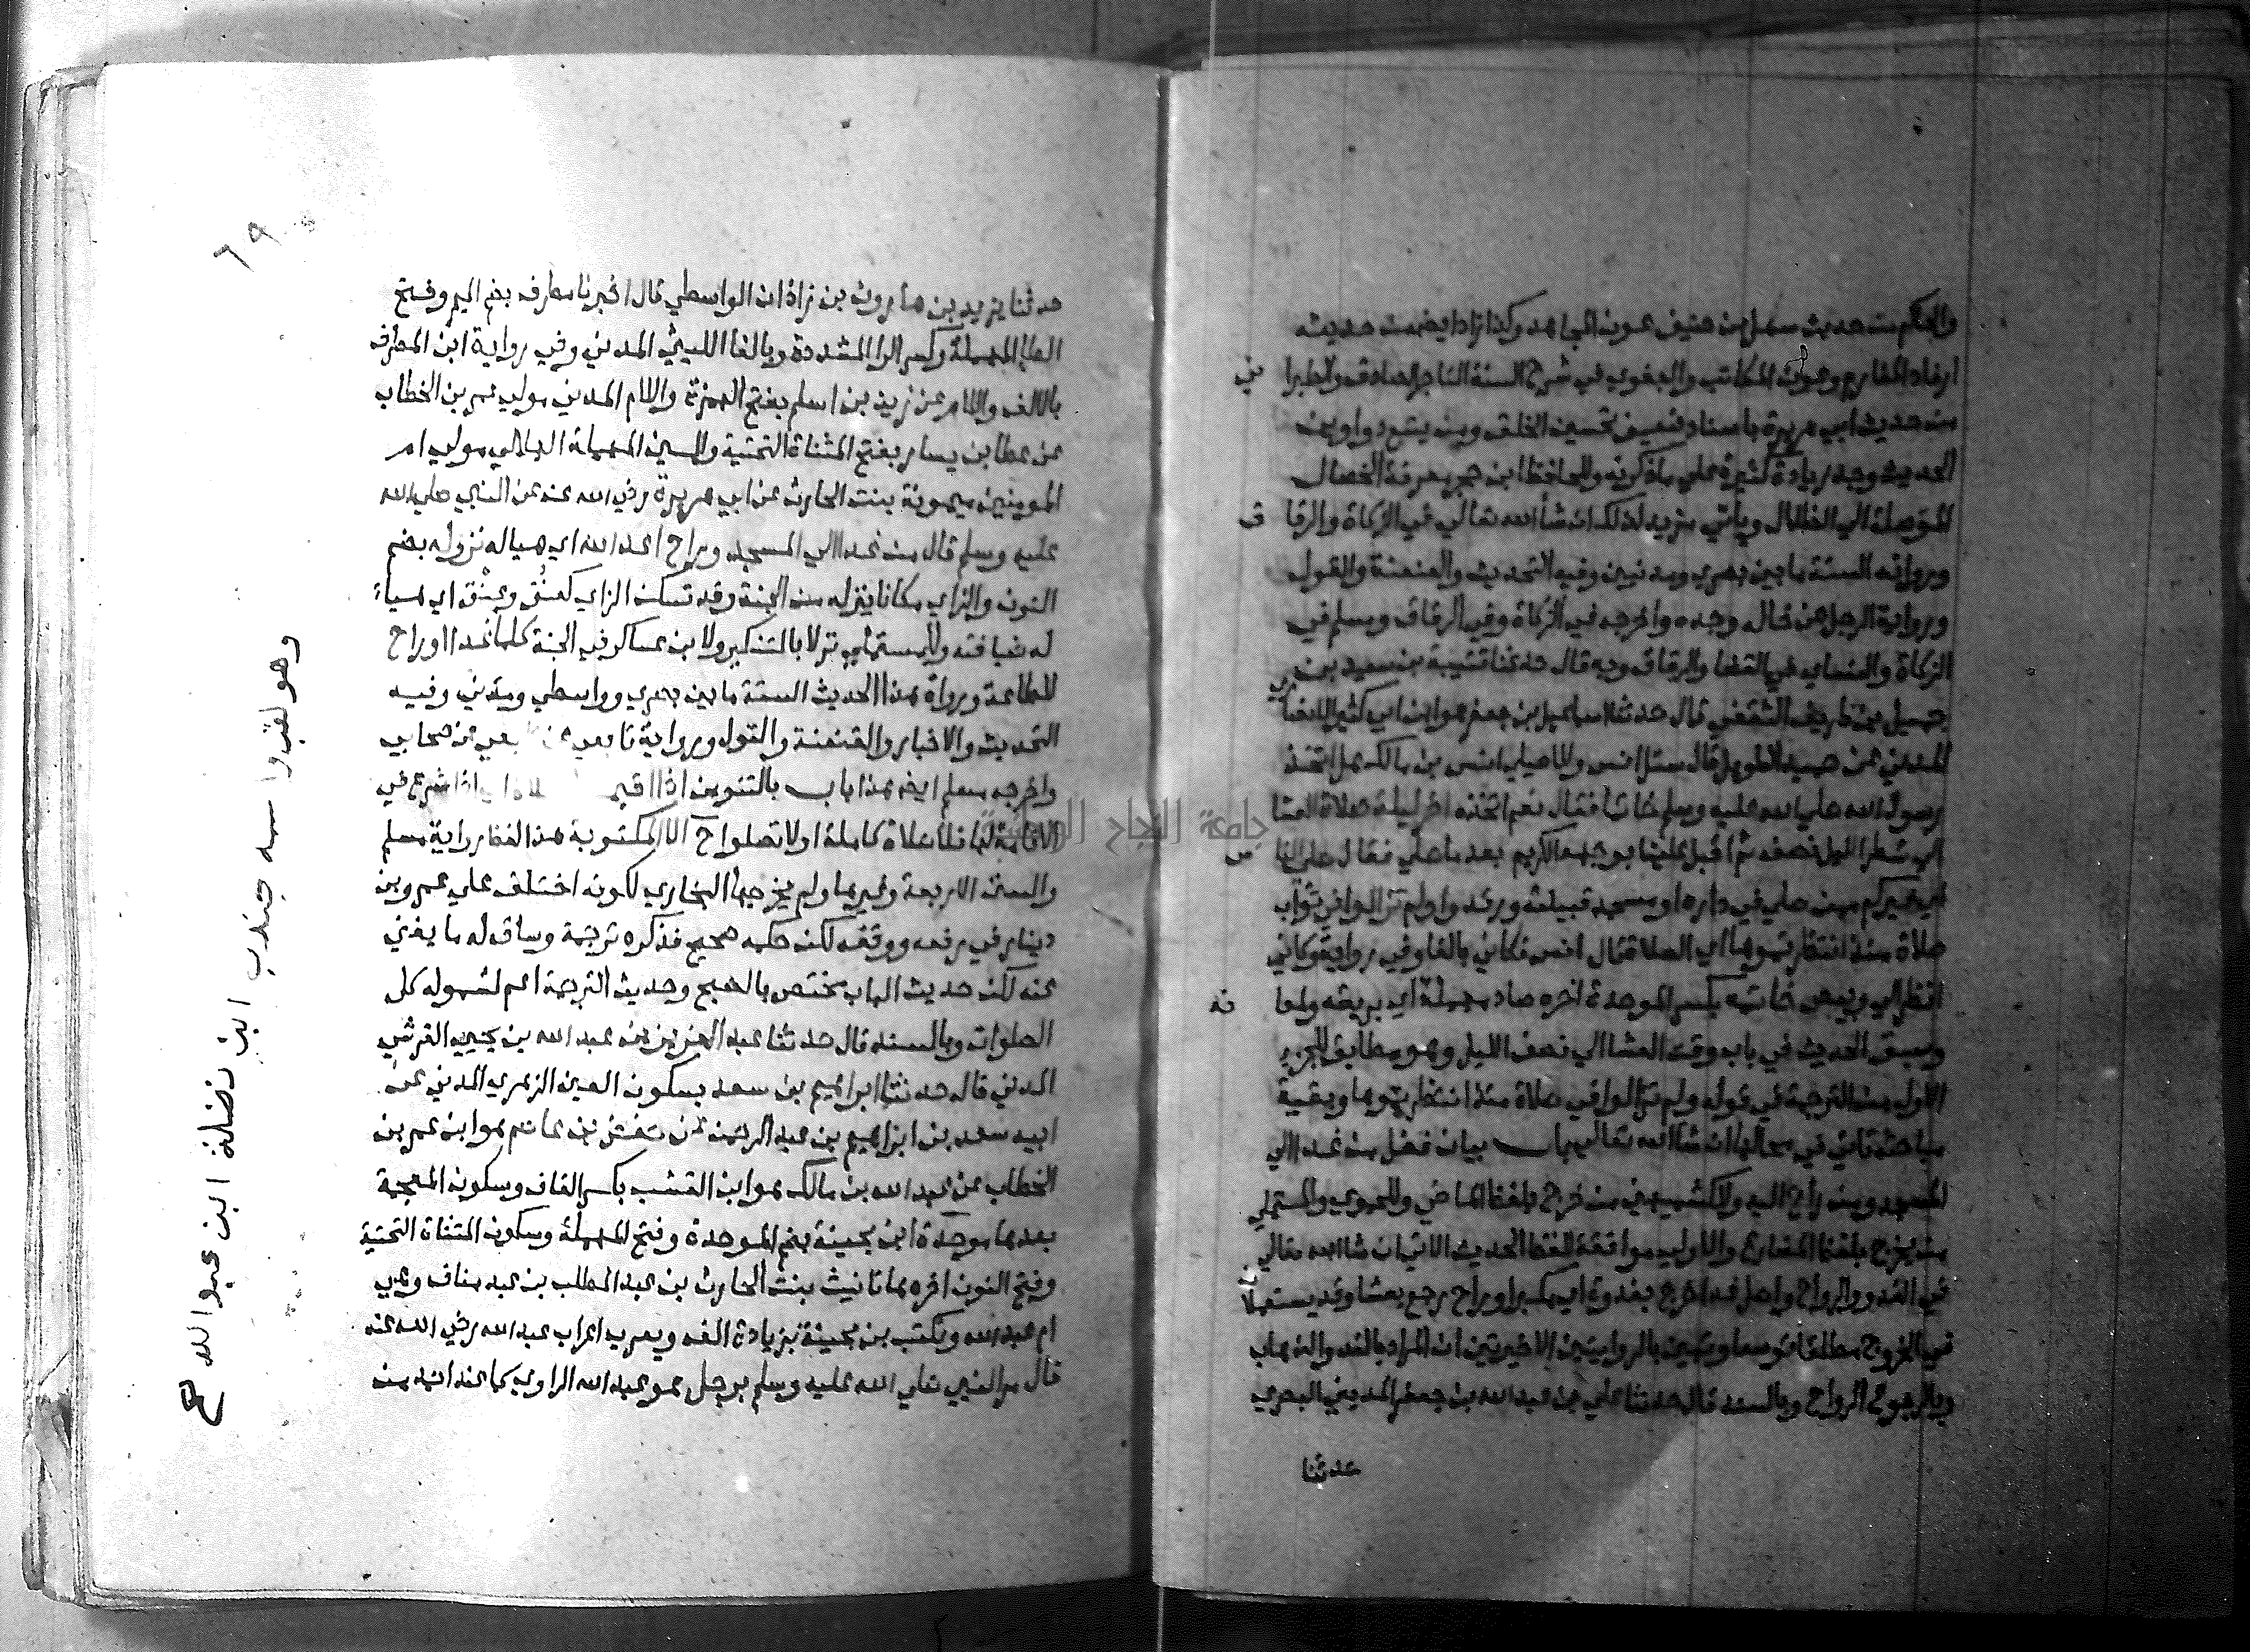 والحاكم من حديث سهل بن حنيف عون المجاهد وكذا زاد ايضا من حديثه
ارفاد الغارم وعون المكاتب والبغوي في شرح السنة التاجر الصادق والطبراني
من حديث ابي هريرة باسناد ضعيف تحسين الخلق ومن يتتبع دواوين
الحديث وجد زيادة كثيرة على ما ذكرته وللحافظ ابن حجر معرفة الخصال
الموصلة الى الظلال وياتي مزيد لذلك ان شا الله تعالي في الزكاة والرقاق
ورواته الستة ما بين بصري ومدنيين وفيه التحديث والعنعنة والقول
ورواية الرجل عن خاله وجده واخرجه في الزكاة وفي الرقاق ومسلم في
الزكاة والنساي في القضا والرقاق وبه قال حدثنا قتيبة بن سعيد بن
جميل بن طريف الثقفي قال حدثنا اسماعيل بن جعفر هو ابن ابي كثير الانصاري
المدني عن حميد الطويل قال سئل انس وللاصيلي انس بن مالك هل اتخذ
رسول الله صلي الله عليه وسلم خاتما فقال نعم اتخذه اخر ليلة صلاة العشا
الي شطر الليل نصفه ثم اقبل علينا بوجهه الكريم بعد ما صلي فقال صلي الناس
اي غيركم ممن صلي في داره او مسجد قبيلته ورقدوا ولم تزالوا في ثواب
صلاة منذ انتظرتموها اي الصلاة قال انس فكاني بالفا وفي رواية وكاني
انظر الي وبيص خاتمه بكسر الموحدة اخره صاد مهملة اي بريقه ولمعانه
وسبق الحديث في باب وقت العشا الي نصف الليل وهو مطابق للجزء
الاول من الترجمة في قوله ولم تزالوا في صلاة منذ انتظرتموها وبقية
مباحثه تاتي في محالها ان شا الله تعالي باب بيان فضل من غدا الي
المسجد ومن راح اليه ولاكشميهني من خرج بلفظ الماضي وللحموي والمستملي
من يخرج بلفظ المضارع والاولي موافقة للفظ الحديث الاتي ان شا الله تعالي
في الغدو والرواح واصل غدا خرج بغدوة اي مبكرا وراح رجع بعشا وقد يستعملا
في الخروج مطلقا توسعا وتبين بالروايتين الاخيرتين ان المراد بالغدو الذهاب
وبالرجوع الرواح وبالسند قال حدثنا علي بن عبد الله بن جعفر المديني البصري
حدثنا
٦٩
حدثنا يزيد بن هارون بن زاذان الواسطي قال اخبرنا مطرف بضم الميم وفتح
الطا المهملة وكسر الرا المشددة وبالفا الليثي المدني وفي رواية ابن المطرف
بالالف واللام عن زيد بن اسلم بفتح الهمزة واللام المدني مولي عمر بن الخطاب
عن عطا بن يسار بفتح المثناة التحتية والسين المهملة الهلالي مولي ام
المومنين ميمونة بنت الحارث عن ابي هريرة رضي الله عنه عن النبي صلي الله
عليه وسلم قال من غدا الي المسجد وراح اعد الله اي هيا له نزوله بضم
النون والزاي مكانا ينزله من الجنة وقد تسكن الزاي كعنُق وعنْق اي هياء
له ضيافته وللمستملي نزلا بالتنكير ولابن عساكر في الجنة كلما غدا او راح
للطاعة ورواة هذا الحديث الستة ما بين بصري وواسطي ومدني وفيه
التحديث والاخبار والعنعنة والقول ورواية تابعي عن تابعي عن صحابي
واخرجه مسلم ايضا هذا باب بالتنوين اذا اقيمت الصلاة اي اذا شرع في
الاقامة لها فلا صلاة كاملة او لا تصلوا ح الا المكتوبة هذا لفظ رواية مسلم
والسنن الاربعة وغيرها ولم يخرجها البخاري لكونه اختلف علي عمرو بن
دينار في رفعه ووقفه لكن حكمه صحيح فذكره ترجمة وساق له ما يغني
عنه لكن حديث الباب مختص بالصبح وحديث الترجمة اعم لشموله كل
الصلوات وبالسند قال حدثنا عبد العزيز بن عبد الله بن يحيي القرشي
المدني قال حدثنا ابراهيم بن سعد بسكون العين الزهري المدني عن
ابيه سعد بن ابراهيم بن عبد الرحمن عن حفص بن عاصم هو ابن عمر بن
الخطاب عن عبد الله بن مالك هو ابن القشب بكسر القاف وسكون المعجمة
بعدها موحدة ابن بحينة بضم الموحدة وفتح المهملة وسكون المثناة التحتية
وفتح النون اخره ها تانيث بنت الحارث بن عبد المطلب بن عبد مناف وهي
ام عبد الله ويكتب بن بحينة بزيادة الف ويعرب اعراب عبد الله رضي الله عنه
قال مر النبي صلي الله عليه وسلم برجل هو عبد الله الراوي كما عند احمد من
وهو لقب واسمه جندب ابن نضلة ابن عبد الله صح